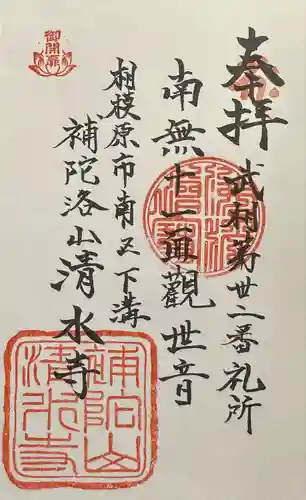 奉拝
武相第卅二番札所
南無十一面観世音
相模原市南区下溝
補陀洛山清水寺
御開扉
補陀山
清水寺